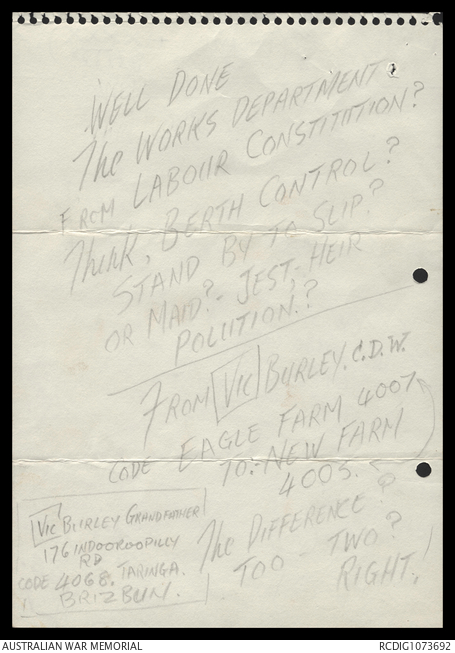 WELL DONE
The WORKS DEPARTMENT?
FROM LABOUR CONSTITUTION?
Think, BERTH CONTROL?
STAND BY TO SLIP?
OR MAID?- JEST, HEIR
POLUTION.?
FROM VIC BURLEY. C.D.W.
CODE EAGLE FARM 4007
TO:- NEW FARM
4005.
The DIFFERENCE?
TOO - TWO?
RIGHT!
VIC BURLEY GRANDFATHER
176 INDOOROOPILLY
RD
CODE 4068. TARINGA.
BRIZBUN.
AUSTRALIAN WAR MEMORIAL
RCDIG1073692